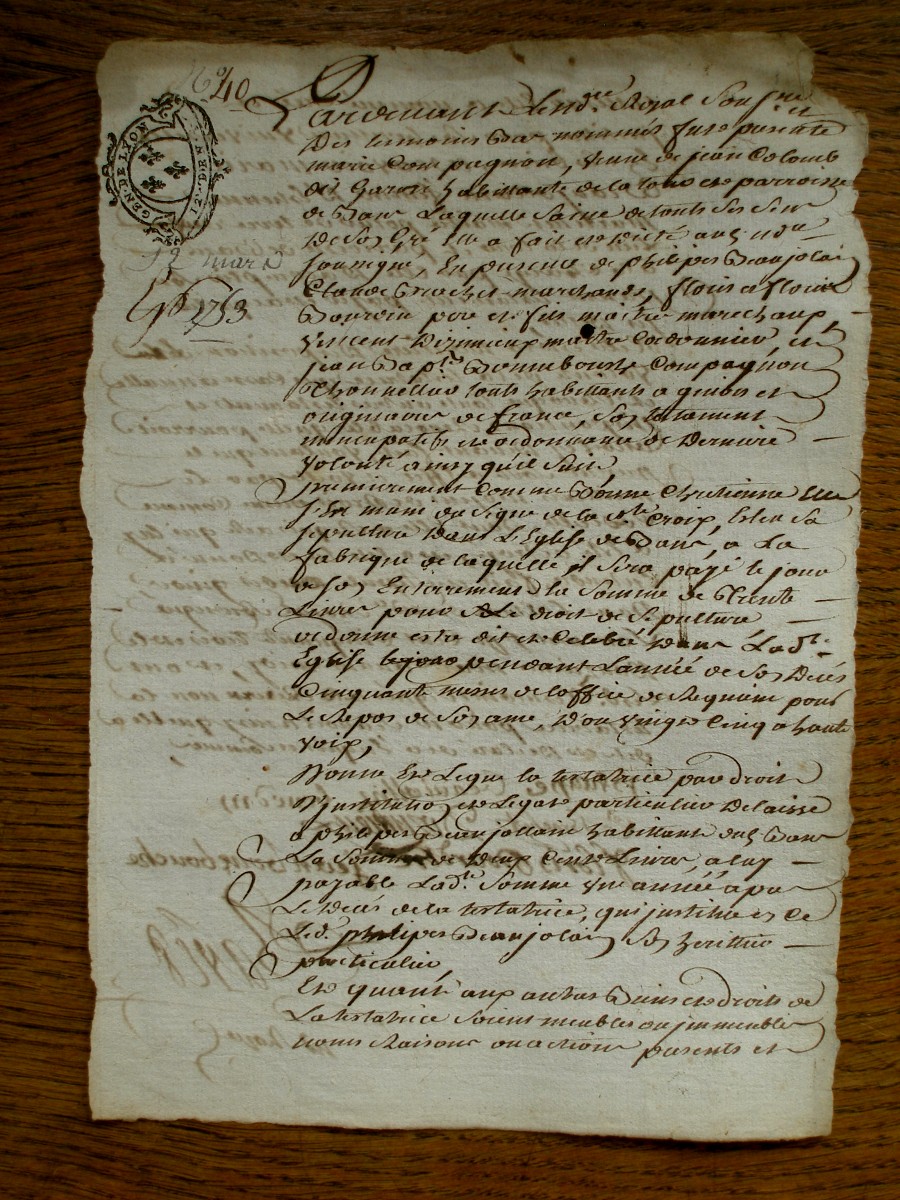 N.° 40
GEN. DE LYON
12 mars
1753
Pardevant Le nd.re Royal Sousg.né et
Des temoins Bas nommés fut presente
marie Compagnon, veuve de jean Colomb
des Garon habittante de la
de Laquelle Saine de touts Ses Sens
De Son Gré a fait et dicté aud. no.re
Sousigné, En presence de philipes Beaujolai
Claude Brochet marchands, flois et floins
Bourdin pere et fils maitre marechaux,
vincent maitre Cordonnier, et
jean Bap.te Bonnebouche Compagnon
thonnellier touts habittants a et
originaires de france, Son testament
nuncupatif et ordonnance de Derniere
volonté ainsy quil Suit
premierement Comme Bonne Chretienne Elle
S'est muni du Signe de la S.te Croix, Eslu Sa
Sepulture dans L'Eglise de, a La
fabrique de laquelle il Sera payé le jour
de Son Enterrement la Somme de trente
Livres pour Le droit de Sepulture
ordonne estre dit et Celebré dans Lad.te
Eglise pendant L'année de Son Décés
Cinquante messes de L'office de Requiem pour
Le Repos de Son ame, Dont vingt Cinq a haute
voix,
Donne Et Legue la testatrice par droit
D'institution et Legat particulier Delaisse
a philipes Beaujollain habittant aud.
La Somme de Deux Cent Livres, a luy
payable Lad.te Somme une année apres
Le Décés de la testatrice, qui justitue et Ce
Led. philipes Beaujolain Son heritier
particulier
Et quant aux autres Biens et droits de
La testatrice Soient meubles ou jmmeubles
noms Raisons ou actions presents et